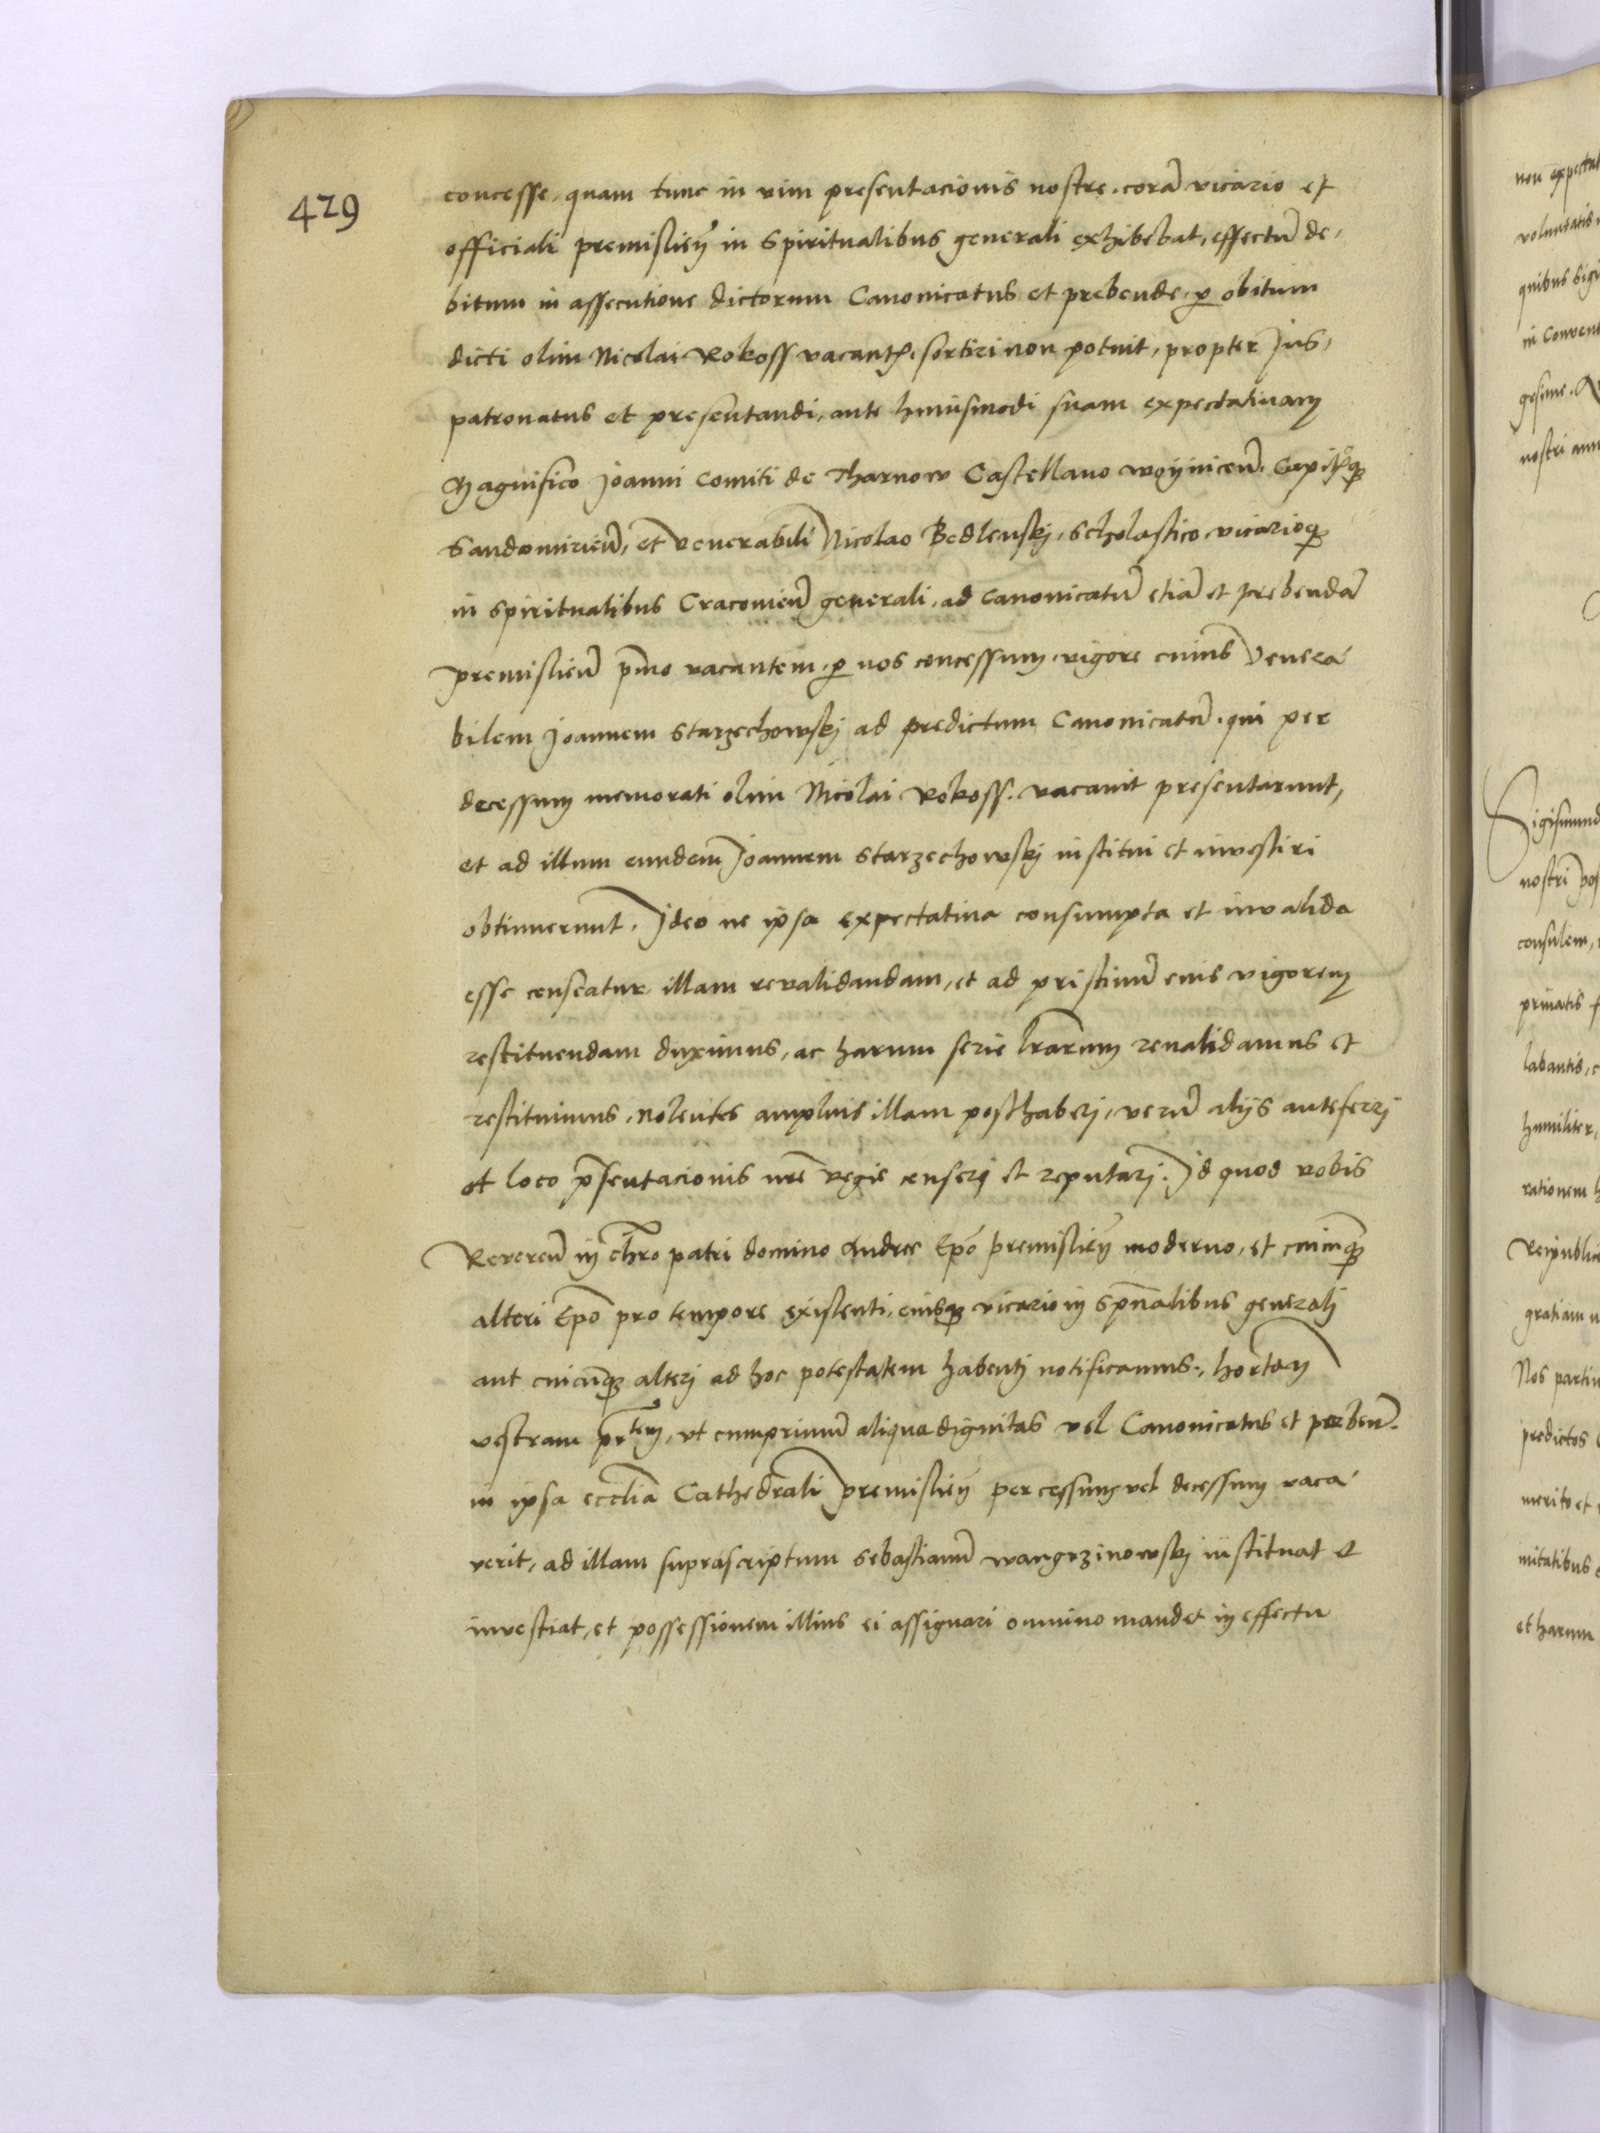 429
concesse, quam tunc in vim presentacionis nostre, corã vicario et
officiali premislieñ in spiritualibus generali exhibebat, effectũ de,
bitum in assecutione dictorum Canonicatus et prebende, p obitum
dicti olim Nicolai Rokoss vacanť, sortiri non potuit, propter Jus,
patronatus et presentandi, ante huiusmodi suam expectativam
Magnifico Joanni Comiti de Tharnow Castellano woÿniceñ. Capitqȝ
Sandomirieñ, et venerabili Nicolao Bedlenskj, Scholastico, vicarioqȝ
in spiritualibus Cracovieñ generali, ad canonicatũ etiã et prebendã
premislieñ p̃mo vacantem, p nos concessum, vigore cuius venera
bilem Joannem Starzechowskj ad predictum Canonicatũ, qui per
decessum memorati olim Nicolai Rokoss. vacavit presentarunt,
et ad illum eundem Joannem Starzechowskj institui et investiri
obtinuerunt, Ideo ne ipsa expectativa consumpta et invalida
esse censeatur illam revalidandam, et ad pristinũ eius vigorem
restituendam duximus, ac harum serie lrarum revalidamus et
restituimus, nolentes amplius illam posthaberj, verũ alijs anteferrj
et loco p̃sentacionis nr̃e regie censerj et reputarj. Id quod vobis
Revereñ in chr̃o patri domino Andree Ep̃o premislieñ moderno, et cuicũqȝ
alteri Ep̃o pro tempore existenti, eiusqȝ vicario in sp̃ualibus generalj
aut cuicũqȝ alterj ad hoc potestatem habentj notificamus, hortam̃
vestram prtem, ut cumprimũ aliqua dignitas vel Canonicatus et prebeñ.
in ipsa ecclia Cathedrali premislieñ per cessum vel decessum vaca
verit, ad illam suprascriptum Sebastianũ wangrzinowskj instituat et
investiat, et possessionem illius ei assignari omnino mandet in effectu
voluntatis
quibus sigi
in Convent
nostri
Sigismund
nostri
consulem,
privatis
labantis,
humiliter,
rationem
Reipublice
gratiam
Nos
predictos
merito et
nitatibus
et harum